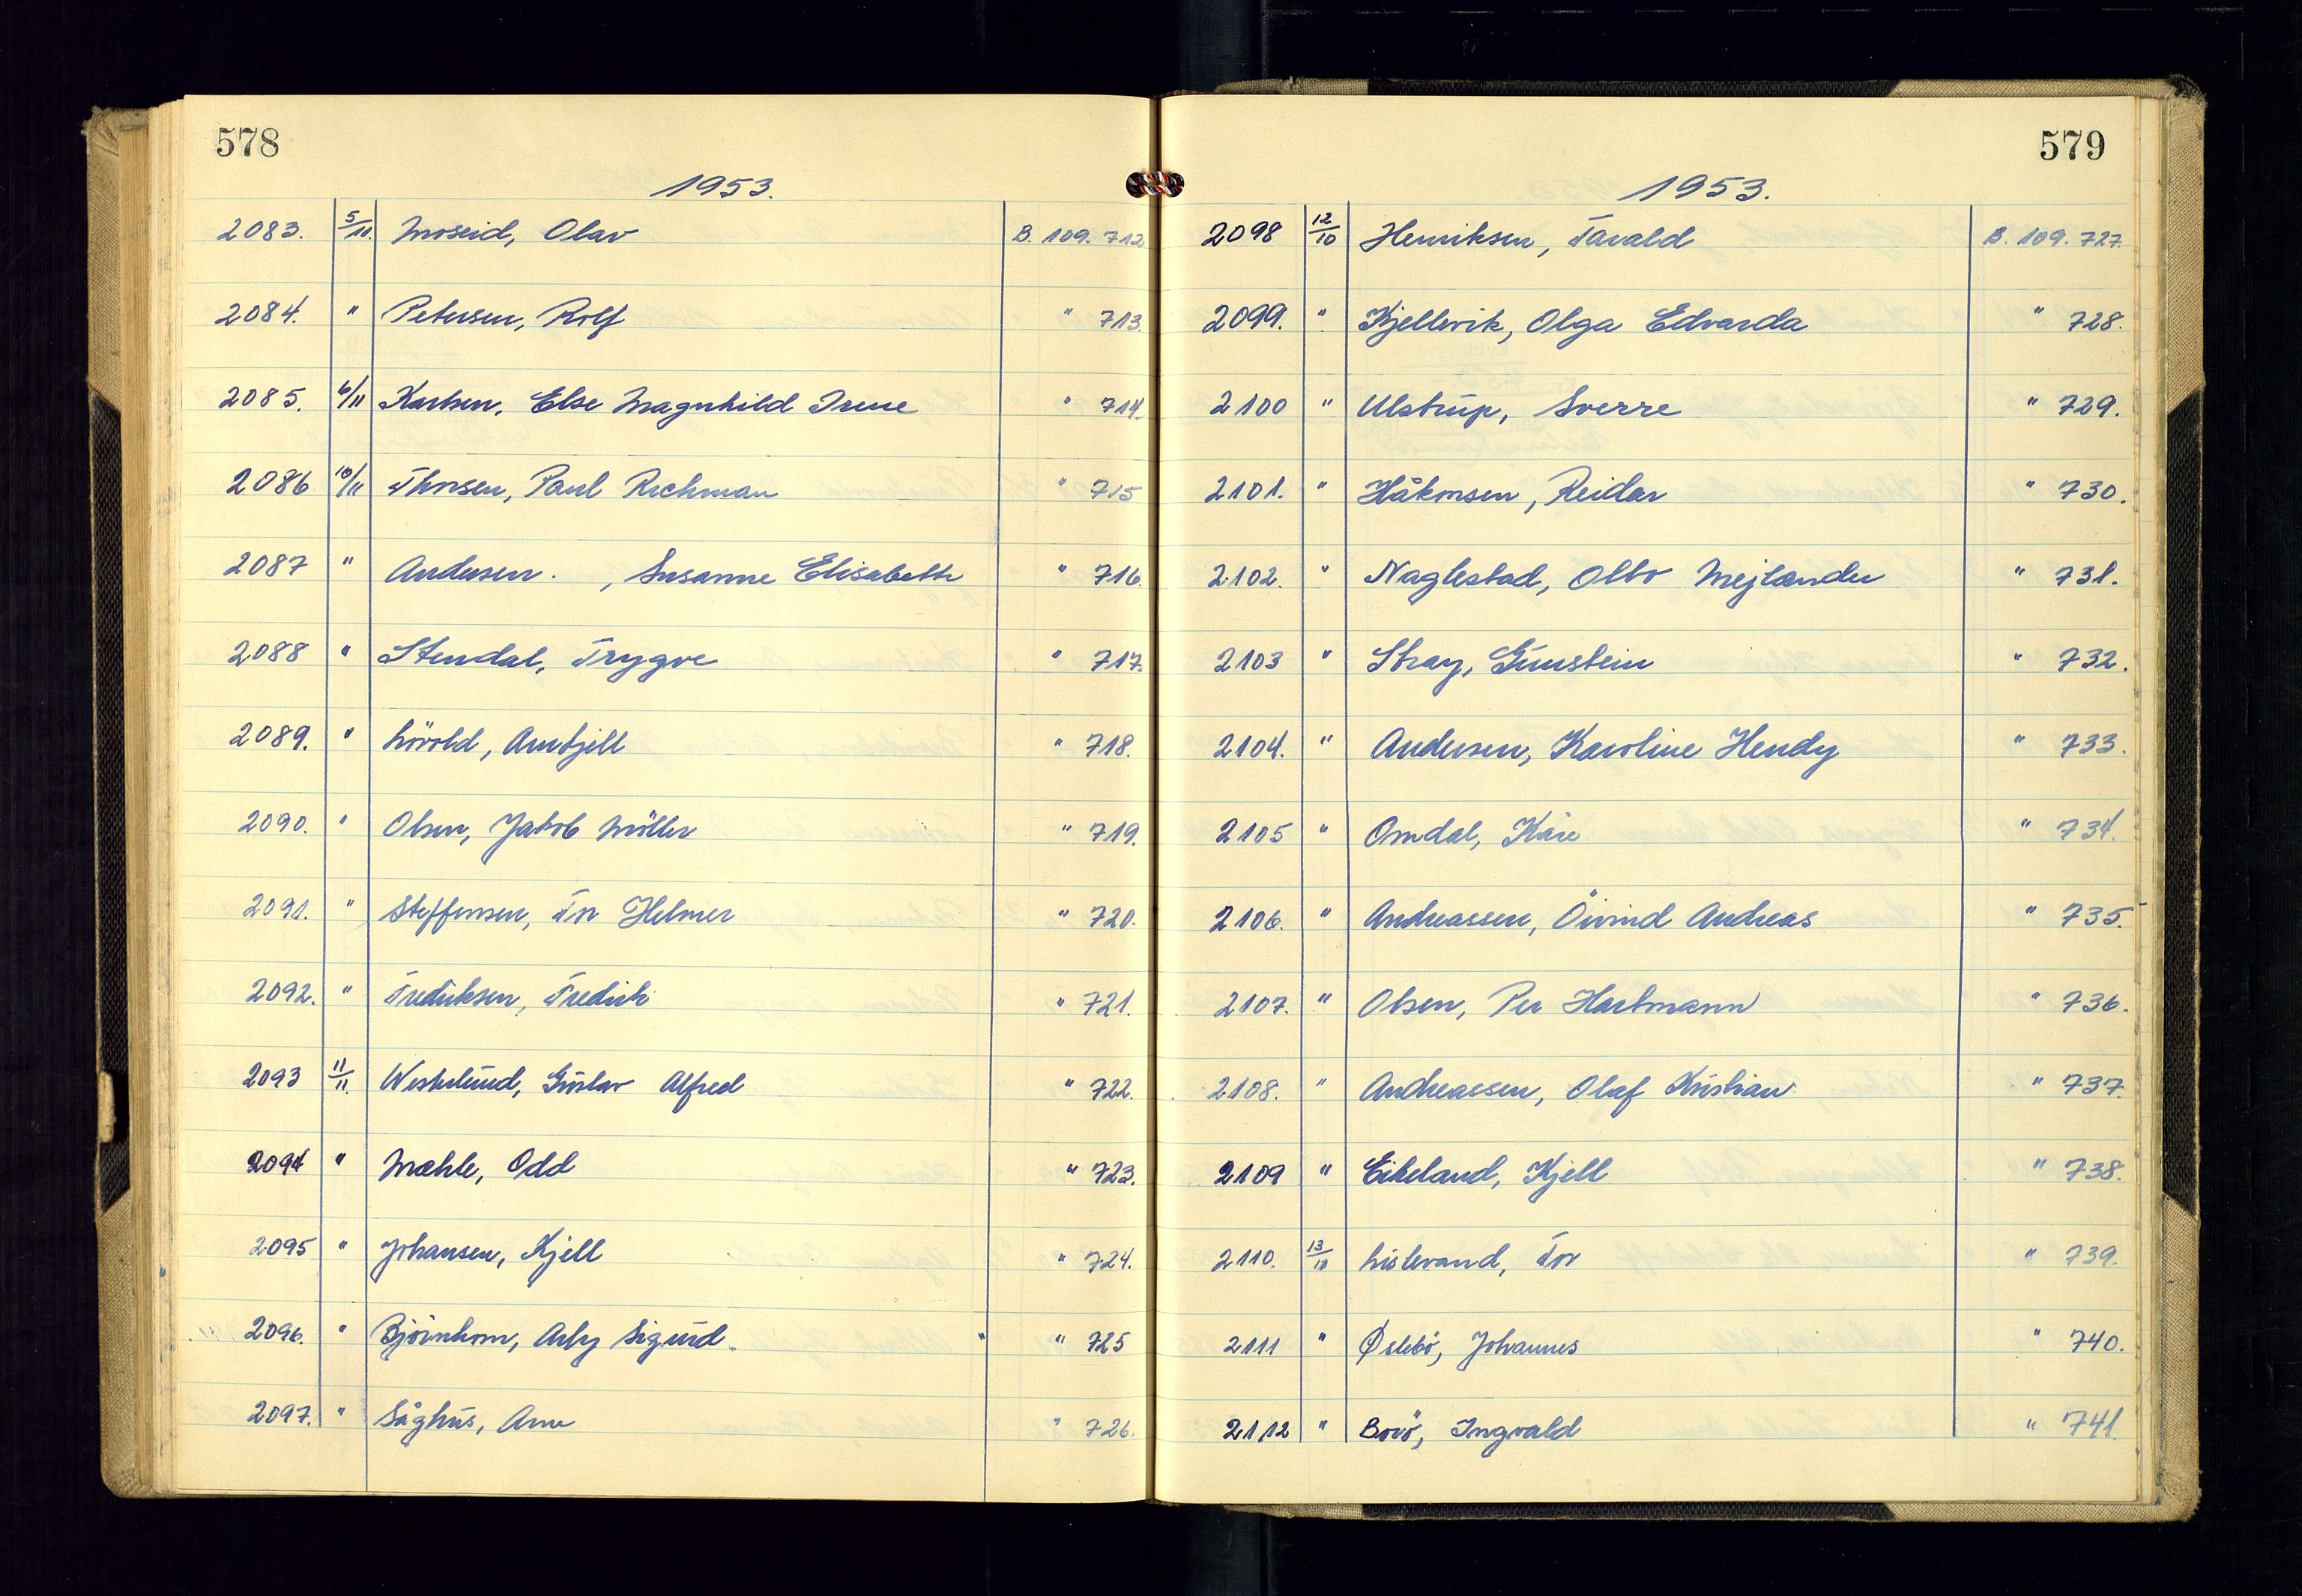 578
1953.
2083. 5/11. Moseid, Olav B. 109. 712
2084. " Petersen, Rolf " 713.
2085. 6/11 Karlsen, Else Magnhild Irene " 714.
2086 10/11 Thorsen, Paul Richman " 715
2087 " Andersen. , Susanne Elisabeth " 716.
2088 " Stendal, Trygve " 717.
2089. " Lövold, Arnkjell " 718.
2090. " Olsen, Jakob Möller " 719.
2091. " Steffensen, Tor Helmer " 720.
2092. " Fredriksen, Fredrik " 721.
2093 11/11. Westerlund, Gustav Alfred " 722.
2094 " Mæhle, Odd " 723.
2095 " Johansen, Kjell " 724.
2096. " Björnholm, Arly Sigurd. " 725
2097. " Såghus, Arne " 726.
579
1953.
2098 12/10 Henriksen, Tarald B. 109. 727.
2099. " Kjellevik, Olga Edvarda " 728.
2100 " Ulstrup, Sverre " 729.
2101. " Håkonsen, Reidar " 730.
2102. " Naglestad, Otto Mejlænder " 731.
2103 " Stray, Gunstein " 732.
2104. " Andersen, Karoline Hendy " 733.
2105 " Omdal, Kåre " 734.
2106. " Andreassen, Öivind Andreas " 735.
2107. " Olsen, Per Hartmann " 736.
2108. " Andreassen, Olaf Kristian " 737.
2109 " Eikeland, Kjell " 738.
2110. 13/10 Lislevand, Tor " 739.
2111 " Østebö, Johannes " 740.
2112 " Bovö, Ingvald " 741.